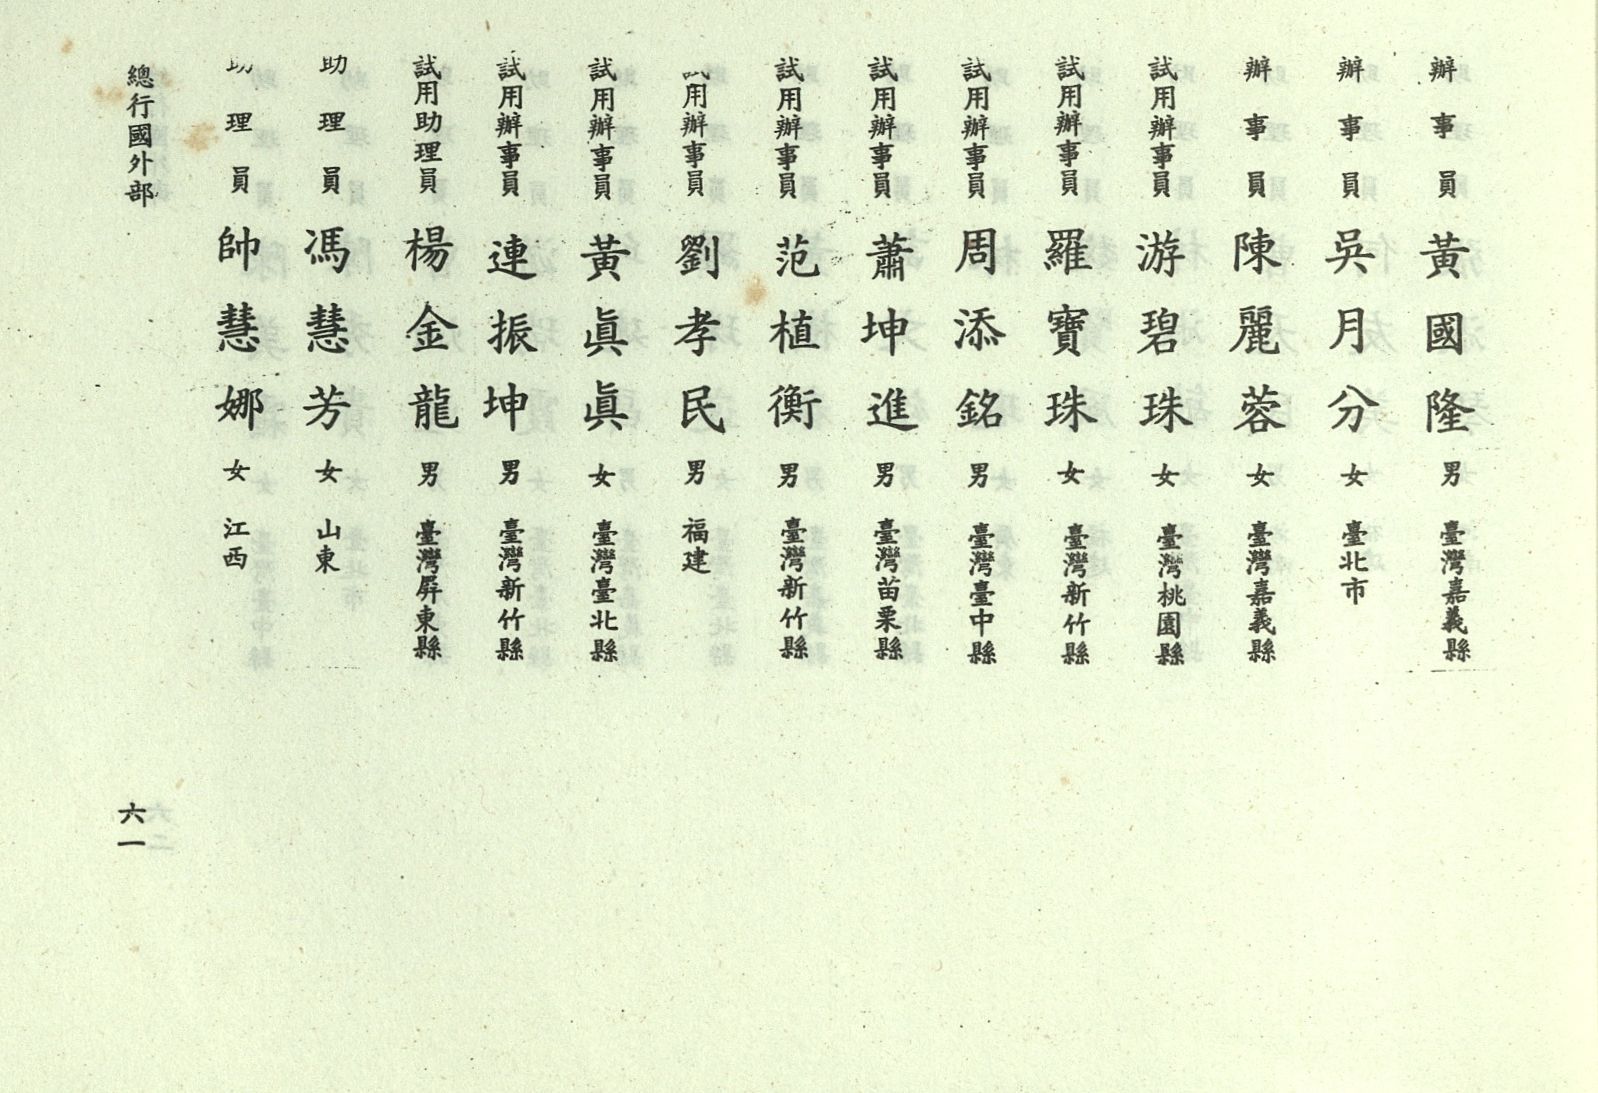 辦事員 黃國隆 男 臺灣嘉義縣
辦事員 吳月分 女 臺北市
辦事員 陳麗蓉 女 臺灣嘉義縣
試用辦事員 游碧珠 女 臺灣桃園縣
試用辦事員 羅寶珠 女 臺灣新竹縣
試用辦事員 周添銘 男 臺灣臺中縣
試用辦事員 蕭坤進 男 臺灣苗栗縣
試用辦事員 范植衡 男 臺灣新竹縣
試用辦事員 劉孝民 男 福建
試用辦事員 黃眞眞 女 臺灣臺北縣
試用辦事員 連振坤 男 臺灣新竹縣
試用助理員 楊金龍 男 臺灣屏東縣
助理員 馮慧芳 女 山東
助理員 帥慧娜 女 江西
總行國外部
六一